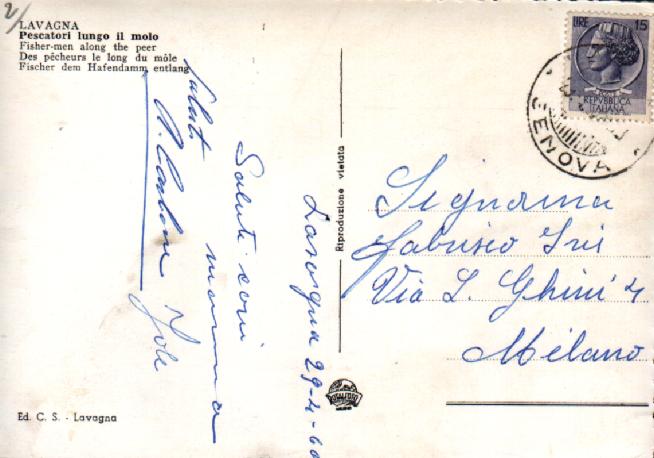 2/
LAVAGNA
Pescatori lungo il molo
Fisher-men along the peer
Des pêcheurs le long du môle
Fischer dem Hafendamm entlang
LIRE 15
REPVBBLICA
ITALIANA
GENOVA
Saluti
Saluti cari
mamma
Jole
Lavagna 29-4-60
Riproduzione vietata
Signorina
Fabrisio Iris
Via L. Ghini 4
Milano
Ed. C. S. - Lavagna